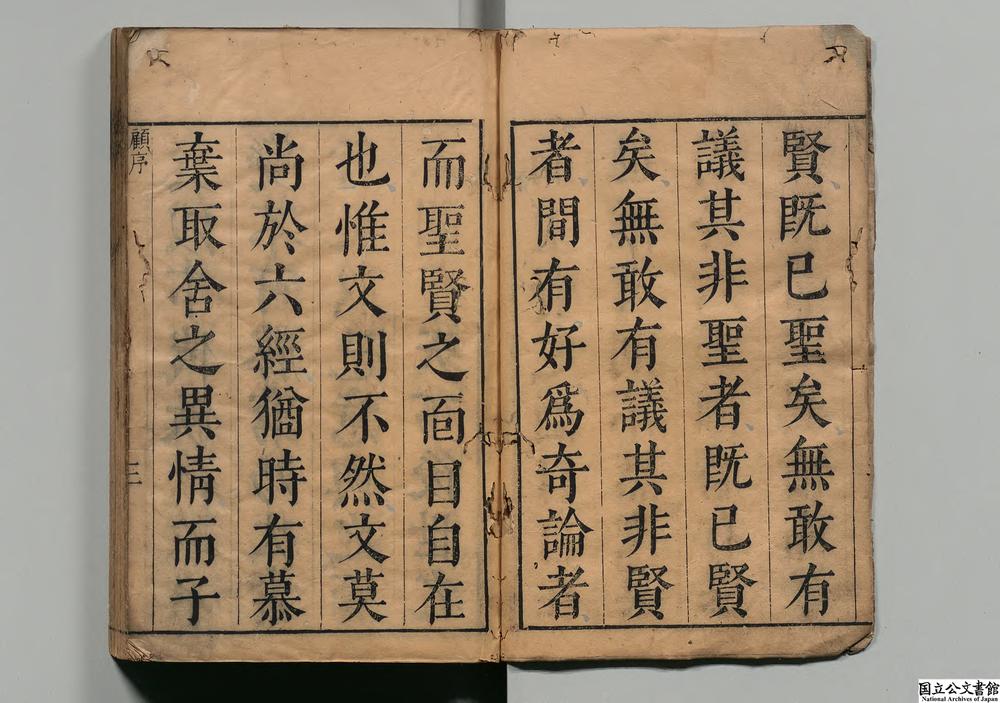 賢既已聖矣無敢有
議其非聖者既已賢
矣無敢有議其非賢
者間有好爲奇論者
而聖賢之面目自在
也惟文則不然文莫
尚於六經猶時有慕
棄取舍之異情而子
顧序
三
国立公文書館
National Archives of Japan